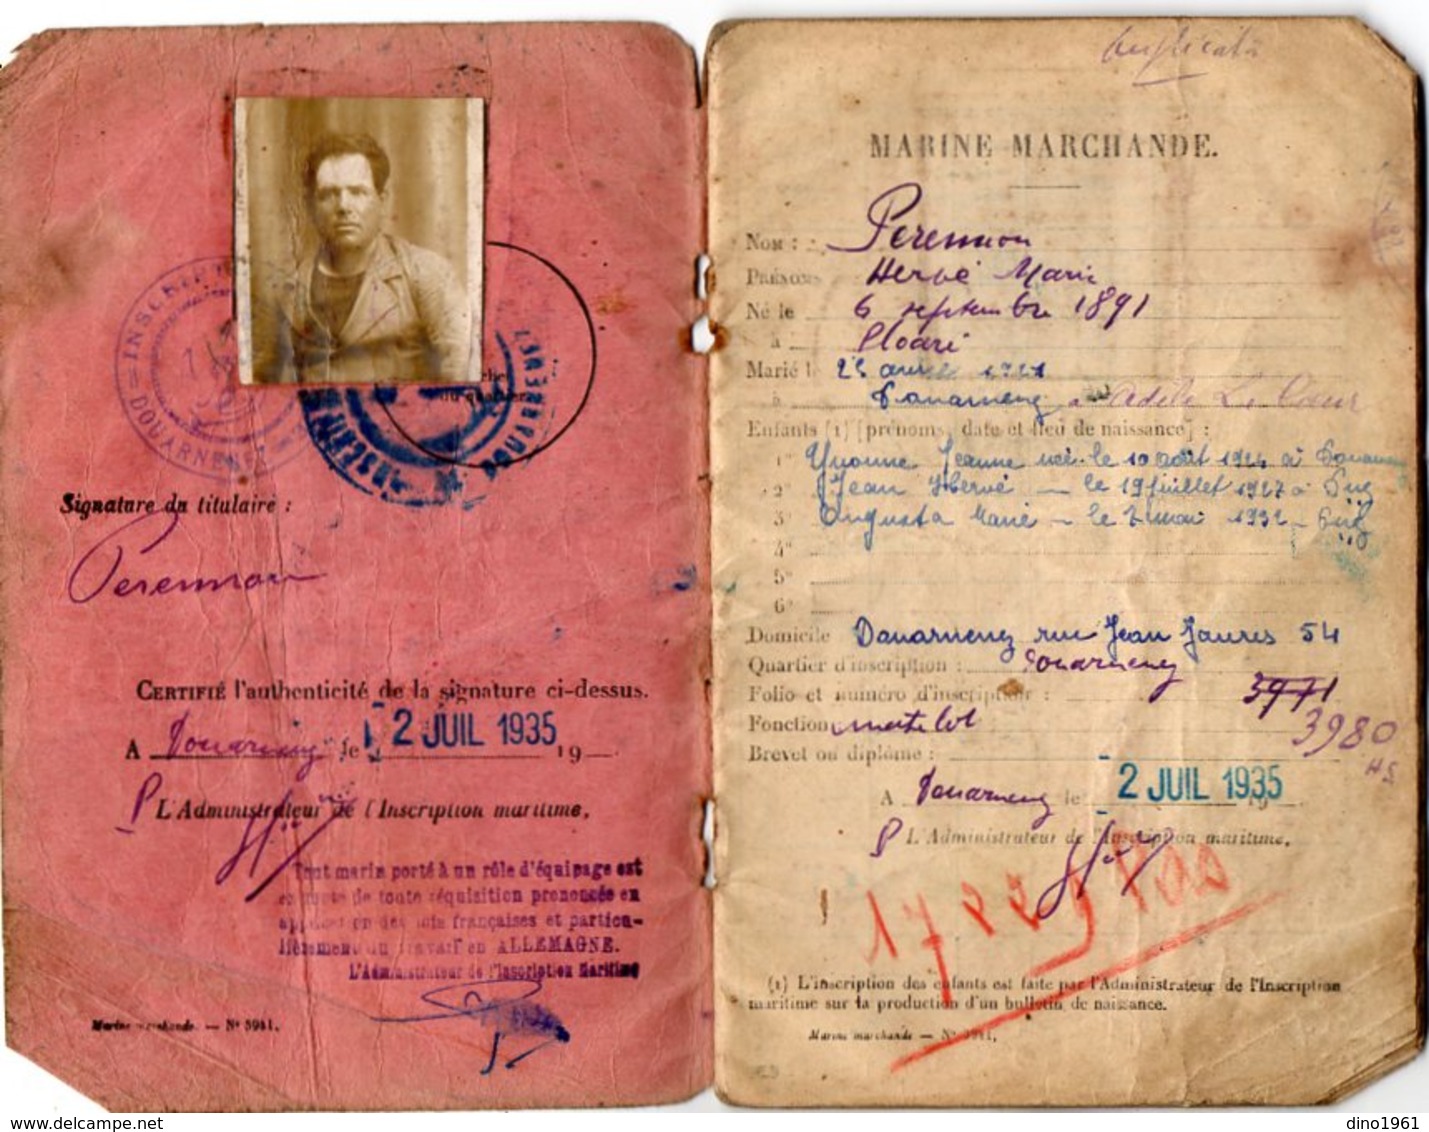 INSCRIP
DOUARNENEZ
DOUARNENEZ
du quartier
Signature du titulaire :
Perennou
CERTIFIÉ l'authenticité de la signature ci-dessus.
A Douarnenez le 2 JUIL 1935 19
P L'Administrateur de l'Inscription maritime,
Tout marin porté à un rôle d'équipage est
exempté de toute réquisition prononcée en
application des lois françaises et particu-
lièrement du travail en ALLEMAGNE.
L'Administrateur de l'Inscription Maritime
Marine marchande. — N° 3941.
Duplicata
MARINE MARCHANDE.
Nom : Perennou
Prénoms Hervé Marie
Né le 6 septembre 1891
à Ploaré
Marié le 25 avril 1921
à Douarnenez à Adèle Le Cœur
Enfants (1) [prénoms, date et lieu de naissance] :
1° Yvonne Jeanne née le 10 août 1924 à Douarnenez
2° Jean Hervé — le 19 juillet 1927 à Dnz
3° Augusta Marie — le 7 mai 1932 — Dnz
4°
5°
6°
Domicile Douarnenez rue Jean Jaurès 54
Quartier d'inscription : Douarnenez
Folio et numéro d'inscription : 3971
Fonction matelot 3980
Brevet ou diplôme : H.S.
A Douarnenez le 2 JUIL 1935 19
P L'Administrateur de l'Inscription maritime,
(1) L'inscription des enfants est faite par l'Administrateur de l'Inscription
maritime sur la production d'un bulletin de naissance.
Marine marchande — N° 3941.
dino1961